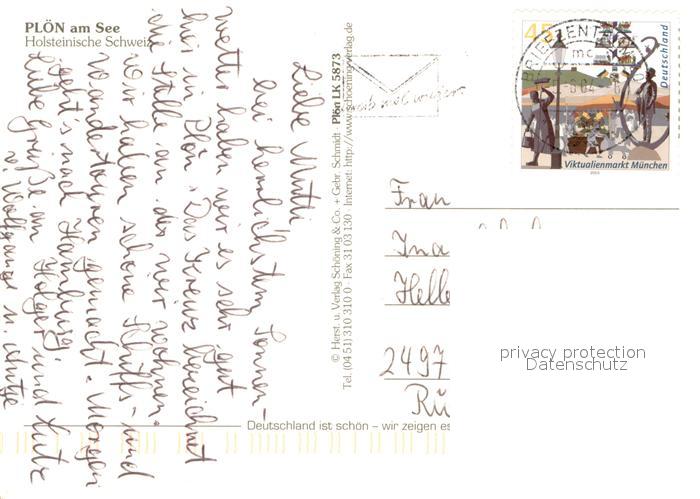 PLÖN am See
Holsteinische Schweiz
Liebe Mutti
bei herrlichstem Sonnen-
wetter haben wir es sehr gut
hier in Plön. Das Kreuz bezeichnet
die Stelle an der wir wohnen.
Wir haben schöne Schiffs- und
Wandertouren gemacht. Morgen
geht's nach Hamburg.
Liebe Grüße an Holger und
Wolfgang u.
© Herst. u. Verlag Schöning & Co. + Gebr. Schmidt · Plön LK 5873
Tel. (04 51) 310 310 0 · Fax 31 03 130 · Internet: http://www.schoening-verlag.de
BRIEFZENTRUM
mc
45
Deutschland
Viktualienmarkt München
2003
Frau
Ina
Helle
2497
Rü
privacy protection
Datenschutz
Deutschland ist schön – wir zeigen es